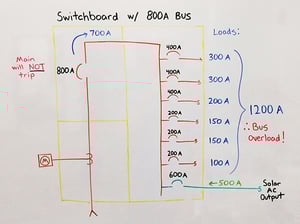 Switchboard w/ 800A BUS
700A
Loads:
Main
will NOT
trip
800A
400A
300 A
400A
300 A
400A
200 A
200A
150 A
200A
150 A
200 A
100 A
1200 A
∴ Bus
overload!
M
600A
500A
Solar
AC
Output